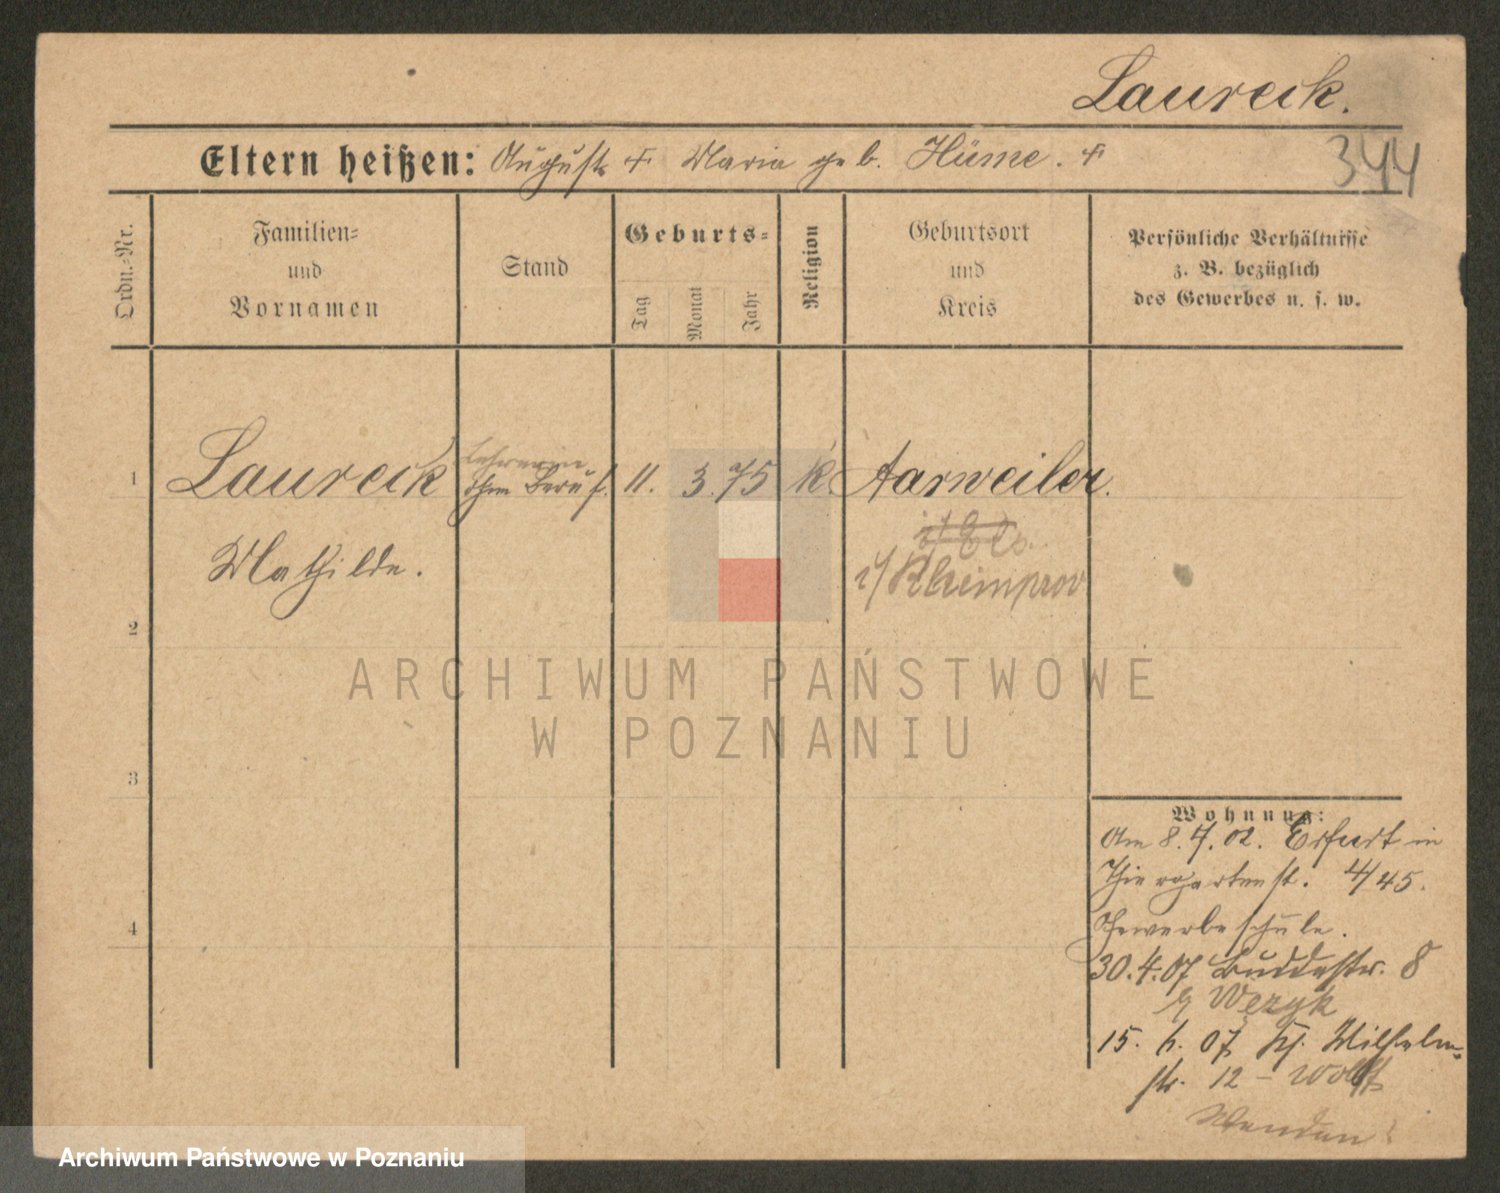 Laureck.
344
Eltern heißen: August + Maria geb. Hüme. +
Ordn.-Nr.
Familien-
und
Vornamen
Stand
Geburts-
Tag
Monat
Jahr
Religion
Geburtsort
und
Kreis
Persönliche Verhältnisse
z. B. bezüglich
des Gewerbes u. s. w.
Lehrerin
1 Laureck ohne Beruf. 11. 3. 75 K Aarweiler.
i/ Els.
Mathilde. i/ Rheinprov
2
3
4
Wohnung:
Am 8. 7. 02. Erfurt in
Thiergartenst. 4/45.
Gewerbeschule.
30.4.07 Buddestr. 8
b/ Węzyk
15. 6. 07 Kl. Wilhelm-
str. 12 - Wolff
Wenden!
ARCHIWUM PAŃSTWOWE
W POZNANIU
Archiwum Państwowe w Poznaniu